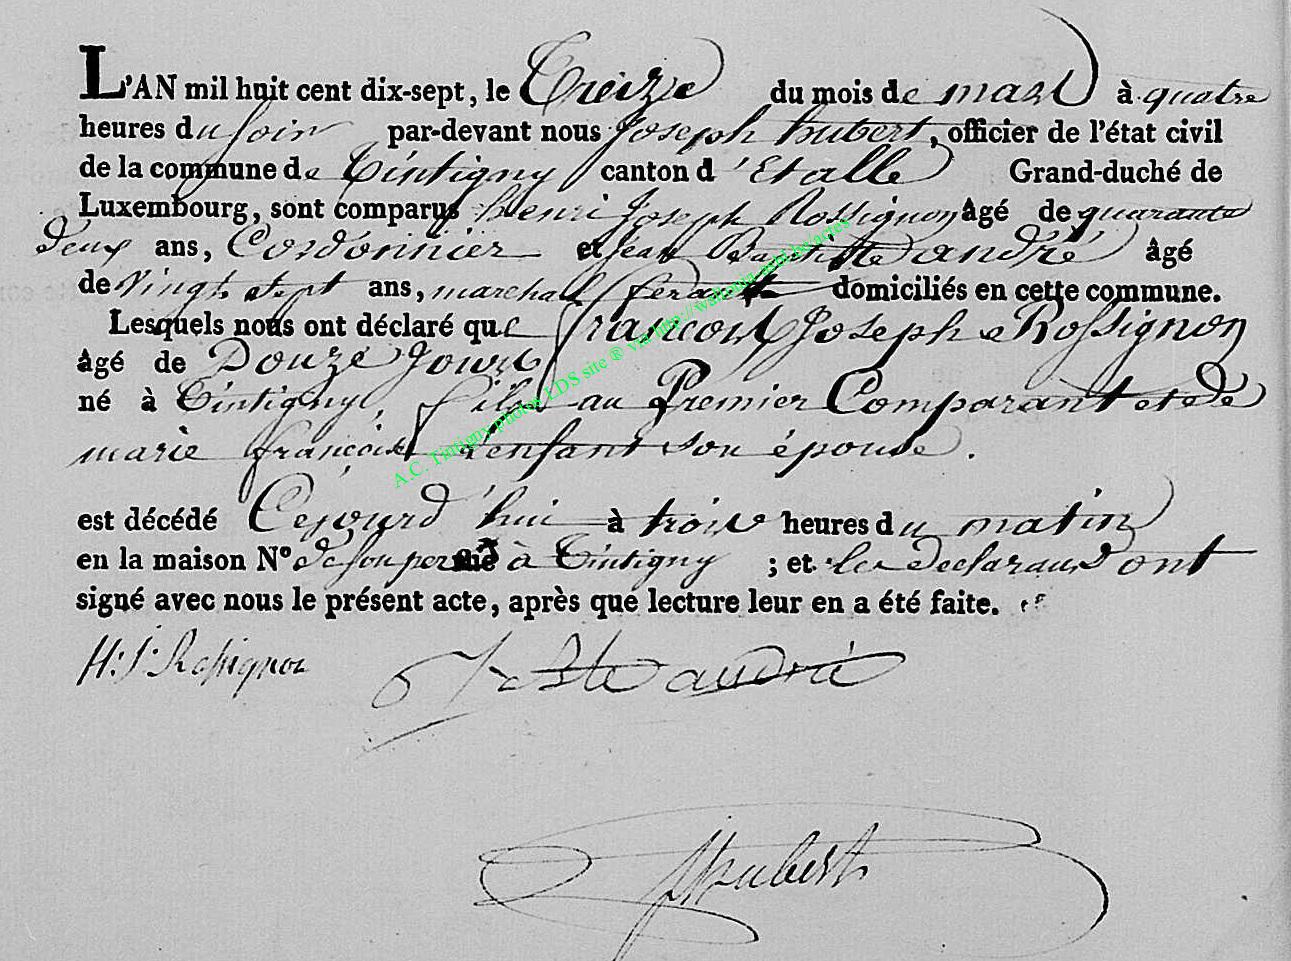 L'AN mil huit cent dix-sept, le Treize du mois de mars à quatre
heures du soir par-devant nous Joseph hubert, officier de l'état civil
de la commune de Tintigny canton d'Etalle Grand-duché de
Luxembourg, sont comparus henri Joseph Rossignon âgé de quarante
deux ans, Cordonnier et Jean Baptiste andré âgé
de vingt sept ans, marchal ferant domiciliés en cette commune.
Lesquels nous ont déclaré que francois Joseph Rossignon
âgé de Douze Jours
né à Tintigny, fils au Premier Comparant et de
marie françoise d'enfant son épouse.
est décédé Cejourd'hui à trois heures du matin
en la maison N° de son per à Tintigny ; et les declarans ont
signé avec nous le présent acte, après que lecture leur en a été faite.
H: J: Rossignon
J Bste andré
J hubert
A.C. Tintigny photos LDS site ® via http://wallonia.asbl.be/actes